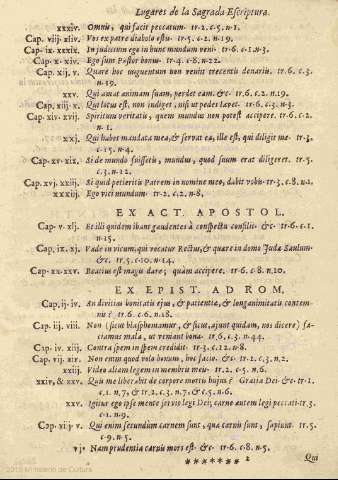 Lugares de la Sagrada Escriptura.
xxxiv. Omnis, qui facit peccatum. tr. 2. c. 5. n. 1.
Cap. viij. xliv. Vos ex patre diabolo estis. tr. 5. c. 2. n. 19.
Cap. ix. xxxix. In judicium ego in hunc mundum veni. tr. 6. c. 1. n. 3.
Cap. x. xiv. Ego sum Pastor bonus. tr. 4. c. 8. n. 22.
Cap. xij. v. Quare hoc unguentum non venit trecentis denariis. tr. 6. c. 3.
n. 19.
xxv. Qui amat animam suam, perdet eam. &c. tr. 6. c. 2. n. 19.
Cap. xiij. x. Qui lotus est, non indiget, nisi ut pedes lavet. tr. 6. c. 3. n. 3.
Cap. xiv. xvij. Spiritum veritatis, quem mundus non potest accipere. tr. 6. c. 2.
n. 1.
xxj. Qui habet mandata mea, & servat ea, ille est, qui diligit me. tr. 3.
c. 15. n. 4.
Cap. xv. xix. Si de mundo fuissetis, mundus, quod suum erat diligeret. tr. 5.
c. 3. n. 12.
Cap. xvj. xxiij. Si quid petieritis Patrem in nomine meo, dabit vobis. tr. 3. c. 8. n. 1.
xxxiij. Ego vici mundum. tr. 2. c. 2. n. 8.
EX ACT. APOSTOL.
Cap. v. xlj. Et illi quidem ibant gaudentes à conspectu consilii. &c. tr. 6. c. 1.
n. 15.
Cap. ix. xj. Vade in vicum, qui vocatur Rectus, & quære in domo Juda Saulum.
&c. tr. 5. c. 10. n. 14.
Cap. xx. xxv. Beatius est magis dare; quàm accipere. tr. 6. c. 8. n. 10.
EX EPIST. AD ROM.
Cap. ij. iv. An divitias bonitatis ejus, & patientiæ, & longanimitatis contem-
nis? tr. 6. c. 6. n. 18.
Cap. iij. viij. Non (sicut blasphemamur, & sicut ajunt quidam, nos dicere) fa-
ciamus mala, ut veniant bona. tr. 6. c. 3. n. 44.
Cap. iv. xiij. Contra spem in spem credidit. tr. 3. c. 12. n. 8.
Cap. vij. xiv. Non enim quod volo bonum, hoc facio. &c. tr. 2. c. 3. n. 2.
xxiij. Video aliam legem in membris meis. tr. 2. c. 5. n. 6.
xxiv, & xxv. Quis me liberabit de corpore mortis hujus? Gratia Dei. &c. tr. 1.
c. 1. n. 7, & tr. 2. c. 3. n. 7, & c. 5. n. 6.
xxv. Igitur ego ipse mente servio legi Dei; carne autem legi peccati. tr. 3.
c. 1. n. 9.
Cap. viij. v. Qui enim secundum carnem sunt, quæ carnis sunt, sapiunt. tr. 5.
c. 9. n. 5.
vj. Nam prudentia carnis mors est. &c. tr. 6. c. 8. n. 5.
******* 2 Qui
2010 Ministerio de Cultura